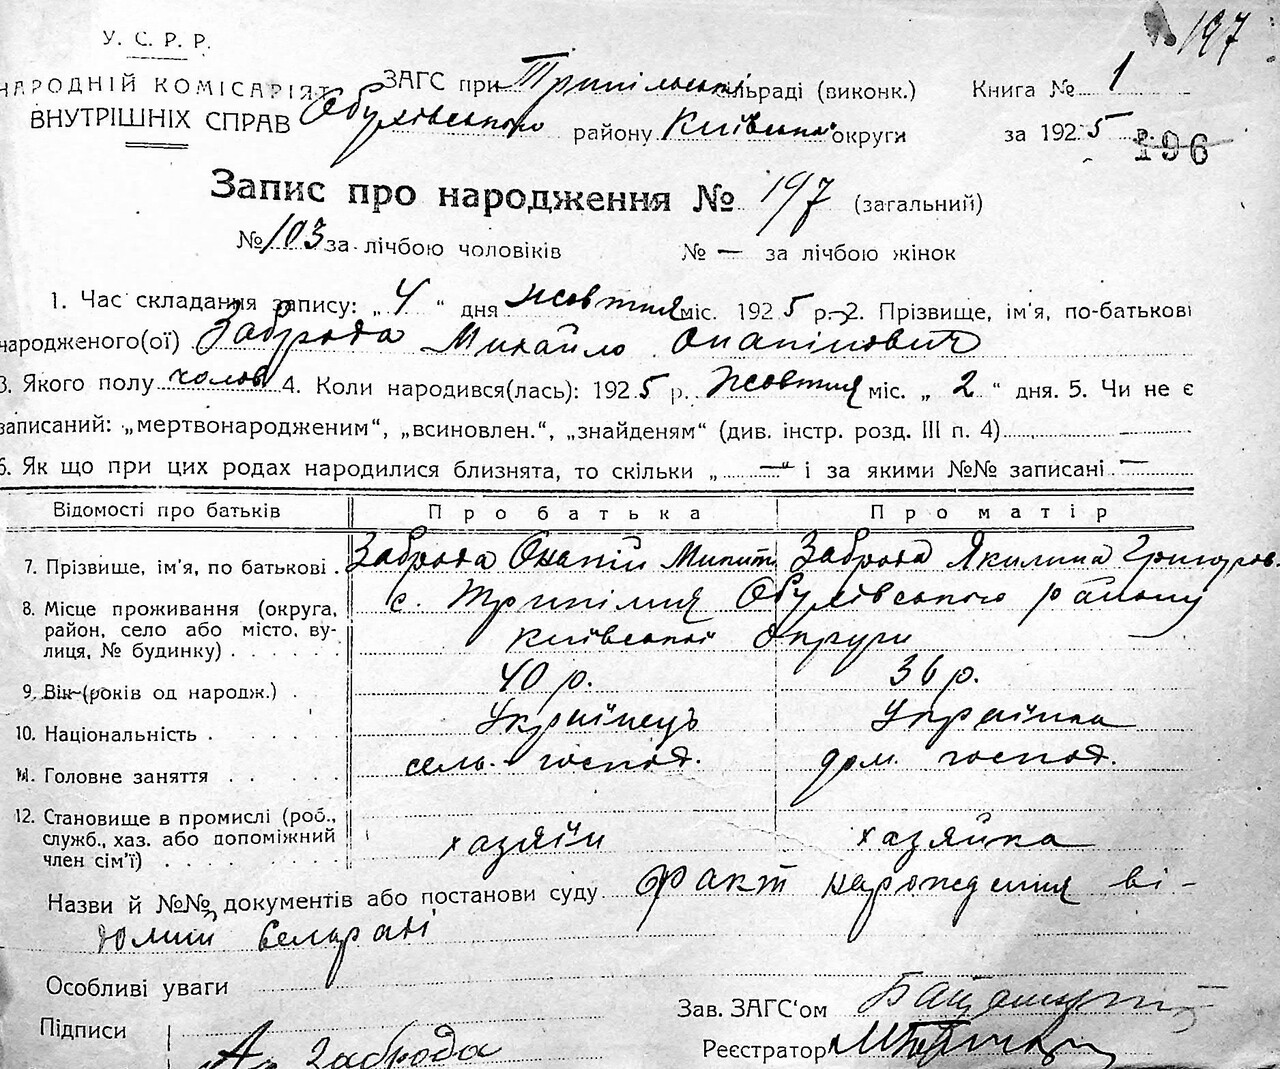 197
У. С. Р. Р.
НАРОДНІЙ КОМІСАРІЯТ ЗАГС при Трипільській сільраді (виконк.) Книга № 1
ВНУТРІШНІХ СПРАВ Обухівського району Київської округи за 1925 р.
196
Запис про народження № 197 (загальний)
№ 103 за лічбою чоловіків № — за лічбою жінок
1. Час складання запису: „4“ дня жовтня міс. 1925 р. 2. Прізвище, ім'я, по-батькові
народженого(ої) Заброда Михайло Онапійович
3. Якого полу чолов 4. Коли народився(лась): 1925 р. жовтня міс. „2“ дня. 5. Чи не є
записаний: „мертвонародженим“, „всиновлен.“, „знайденям“ (див. інстр. розд. III п. 4)
6. Як що при цих родах народилися близнята, то скільки „—“ і за якими №№ записані —
Відомості про батьків Про батька Про матір
7. Прізвище, ім'я, по батькові. Заброда Онапій Микит Заброда Якилина Григоров.
8. Місце проживання (округа, с. Трипілля Обухівського району
район, село або місто, ву- Київської округи
лиця, № будинку)
9. Вік (років од народж.) 40 р. 36 р.
10. Національність Українець Українка
11. Головне заняття сель. господ. дом. господ.
12. Становище в промислі (роб.,
служб., хаз. або допоміжний хазяїн хазяйка
член сім'ї)
Назви й №№ документів або постанови суду Факт народження ві-
домий Сельраді
Особливі уваги
Зав. ЗАГС'ом
Підписи
Заброда Реєстратор